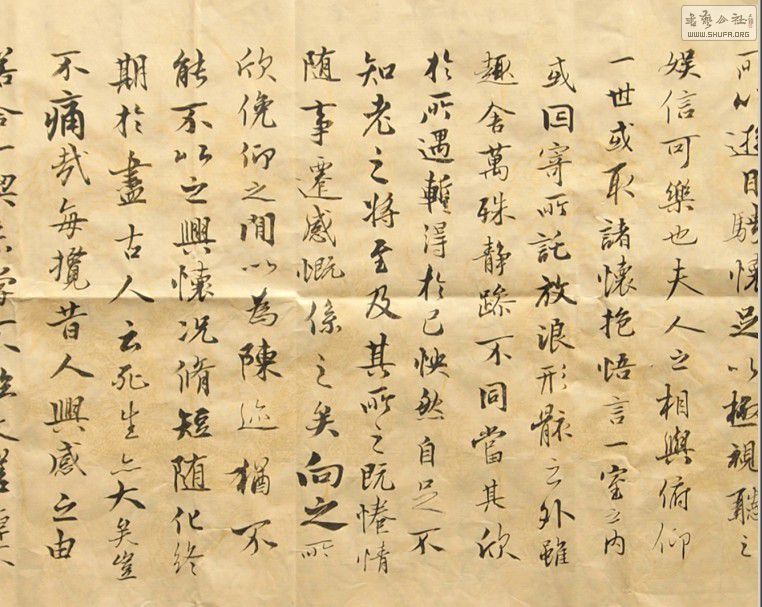 書藝公社
WWW.SHUFA.ORG
以遊目騁懷足以極視聽之
娛信可樂也夫人之相與俯仰
一世或取諸懷抱悟言一室之內
或因寄所託放浪形骸之外雖
趣舍萬殊静躁不同當其欣
於所遇暫得於己怏然自足不
知老之將至及其所之既惓情
随事遷感慨係之矣向之所
欣俛仰之間以為陳迹猶不
能不以之興懷況脩短随化終
期於盡古人云死生亦大矣豈
不痛哉每攬昔人興感之由
若合一契未嘗不臨文嗟悼不